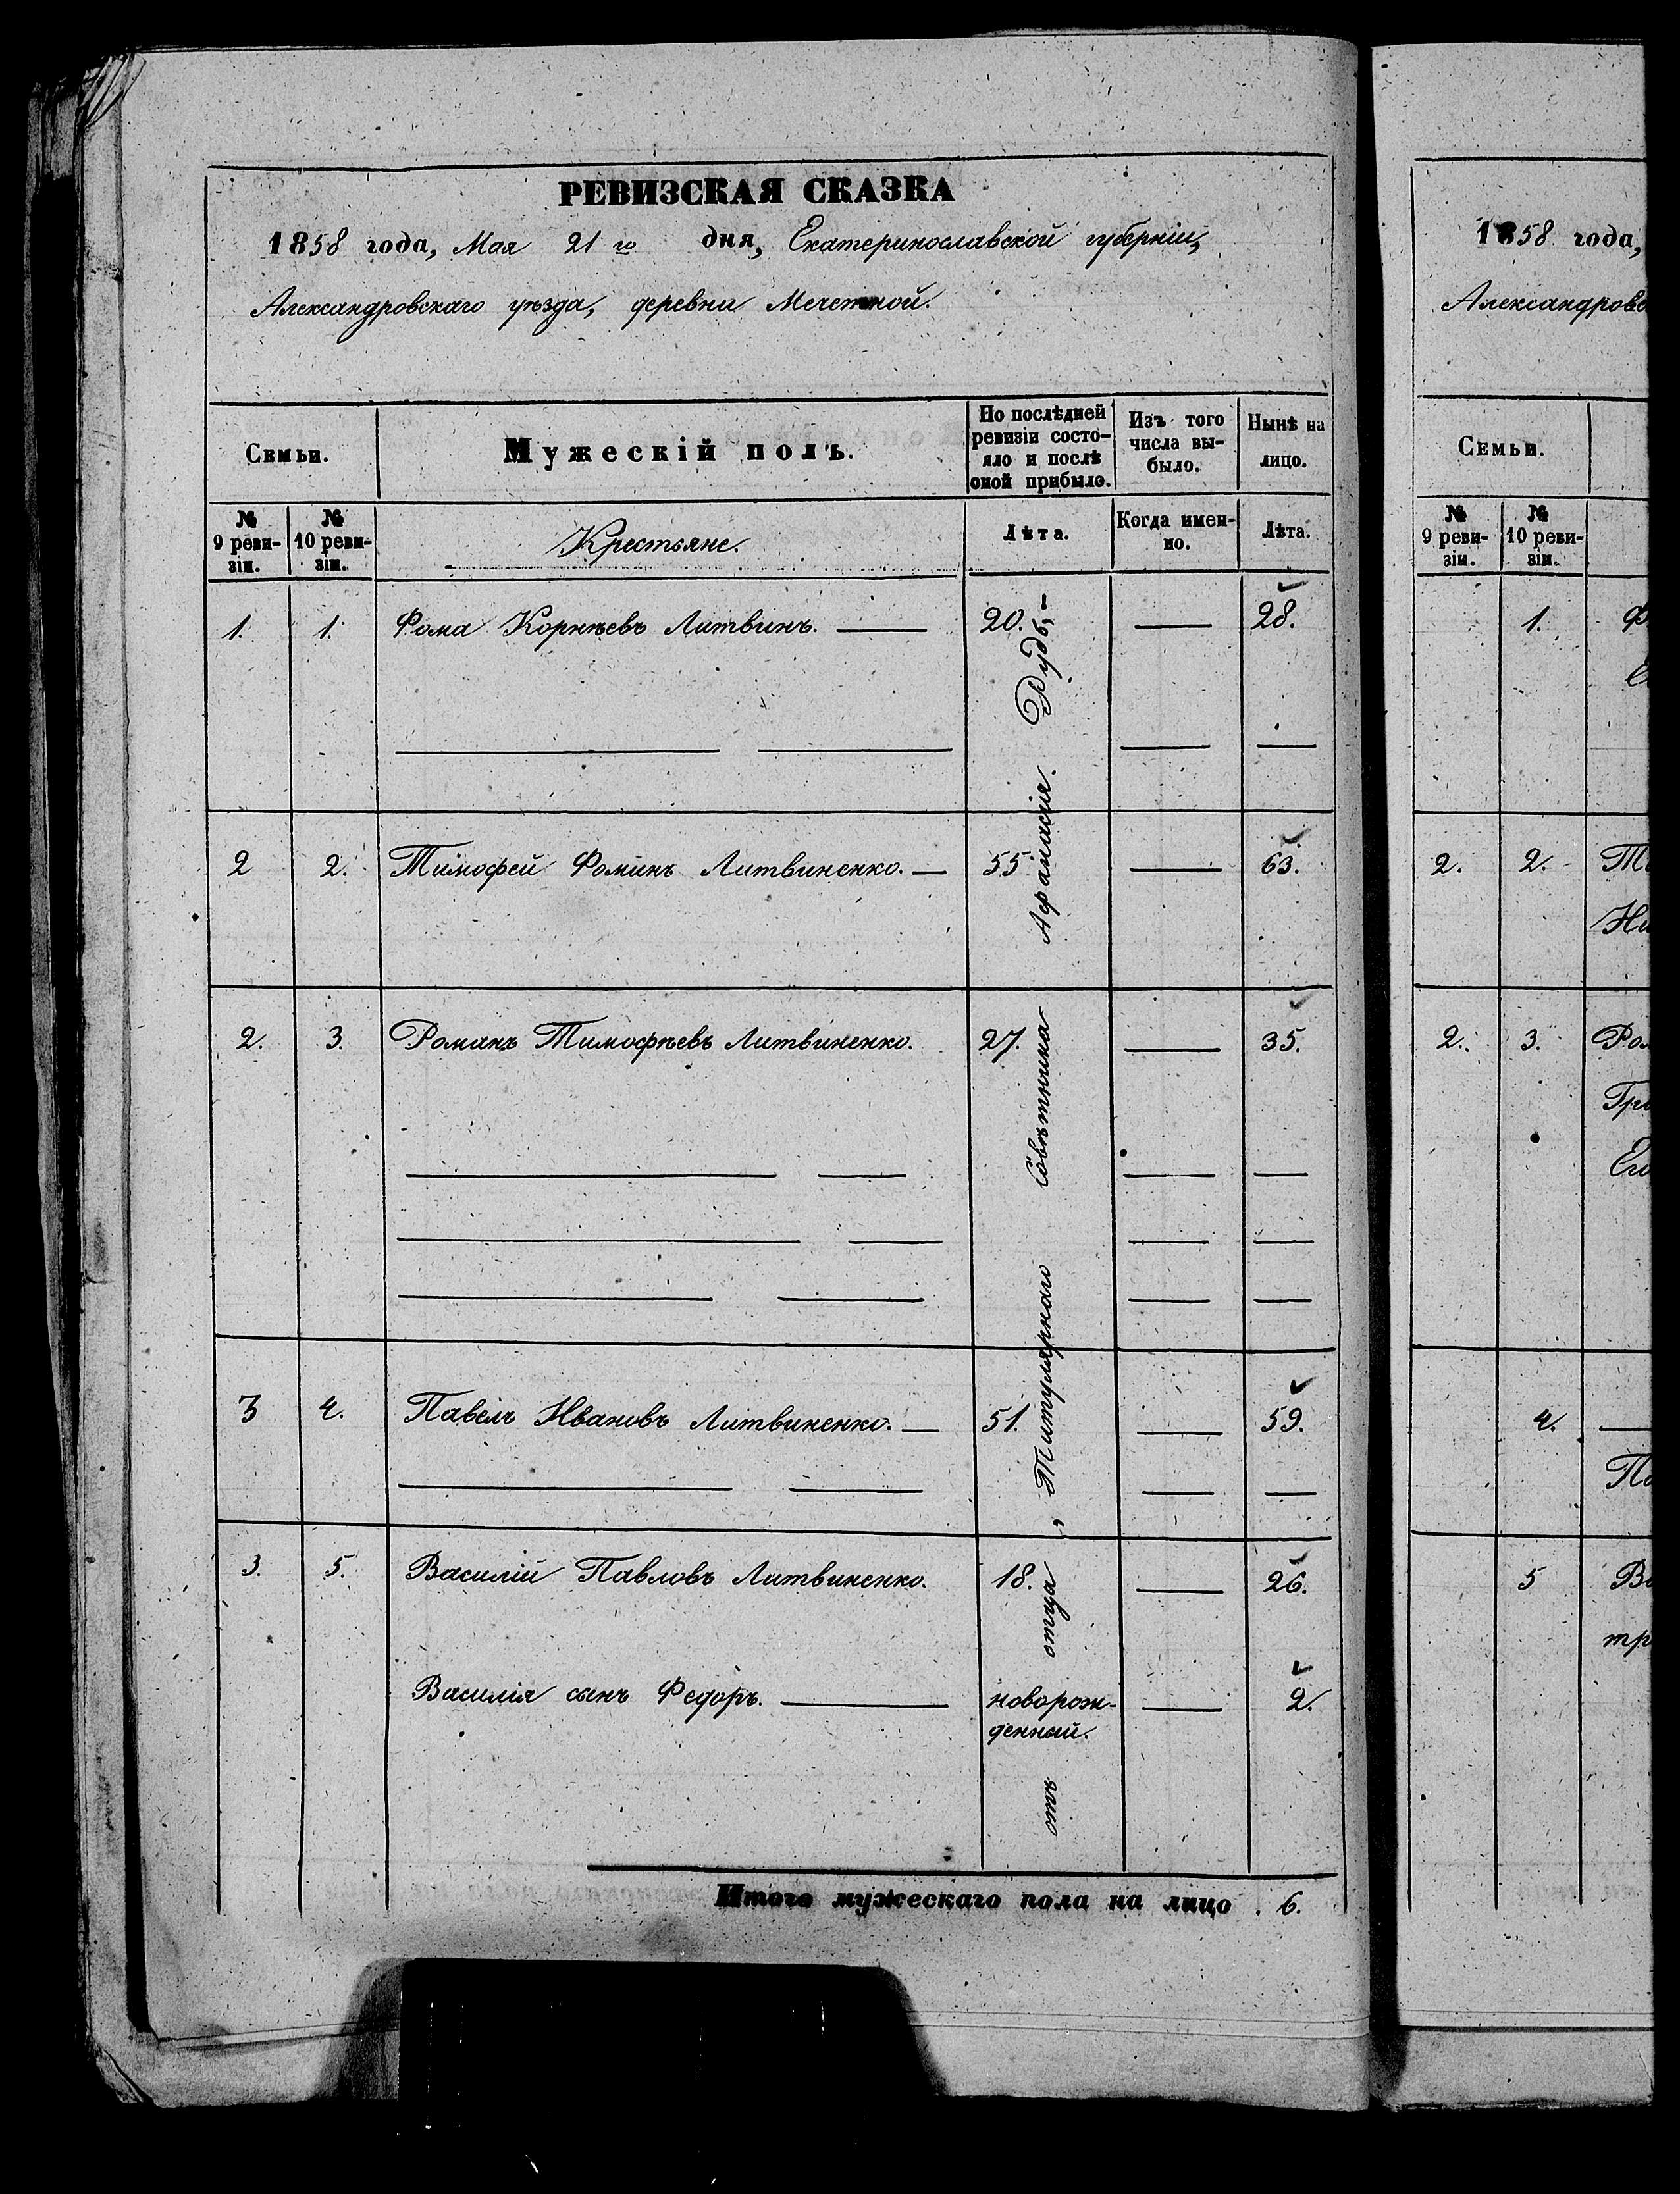 РЕВИЗСКАЯ СКАЗКА
1858 года, Мая 21 го дня, Екатеринославской губерніи,
Александровскаго уѣзда, деревни Мечетной.
Семьи.
Мужескій полъ.
По послѣдней
ревизіи состо-
яло и послѣ
оной прибыло.
Изъ того
числа вы-
было.
Нынѣ на
лицо.
№
9 реви-
зіи.
№
10 реви-
зіи.
Крестьяне.
Лѣта.
Когда имен-
но.
Лѣта.
1. 1. Фома Корнѣевъ Литвинъ. 20. 28.
2 2. Тимофей Фоминъ Литвиненко. 55 63.
2. 3. Романъ Тимофѣевъ Литвиненко. 27. 35.
3 4. Павелъ Ивановъ Литвиненко. 51. 59.
3. 5. Василій Павловъ Литвиненко. 18. 26.
Василія сынъ Федоръ. новорож- 2.
денный.
отъ отца, Титулярнаго Совѣтника Афанасія.
Итого мужескаго пола на лицо . 6.
1858 года,
Александровс
Семьи.
№
9 реви-
зіи.
№
10 реви-
зіи.
1. Ф
2. 2. Ти
Ни
2. 3. Ром
Гри
Ег
4.
Па
5 Ва
тр